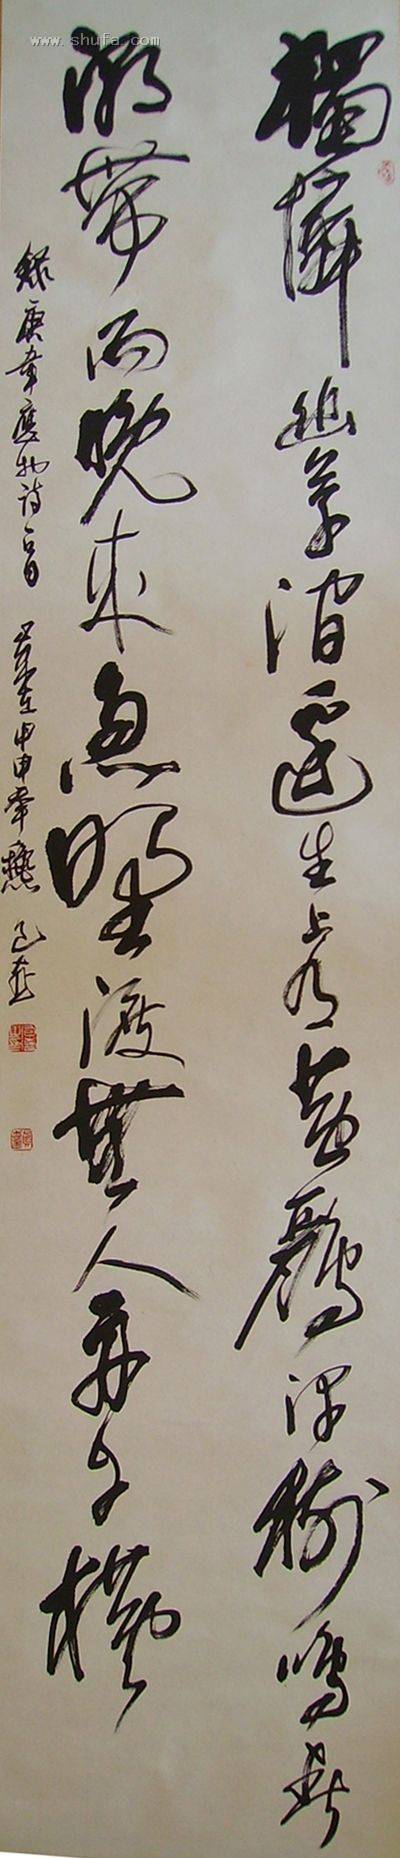 www.shufa.com
獨憐幽草澗邊生上有黃鸝深樹鳴春
潮帶雨晚來急野渡無人舟自橫
錄唐韋應物詩一首 歲在甲申年